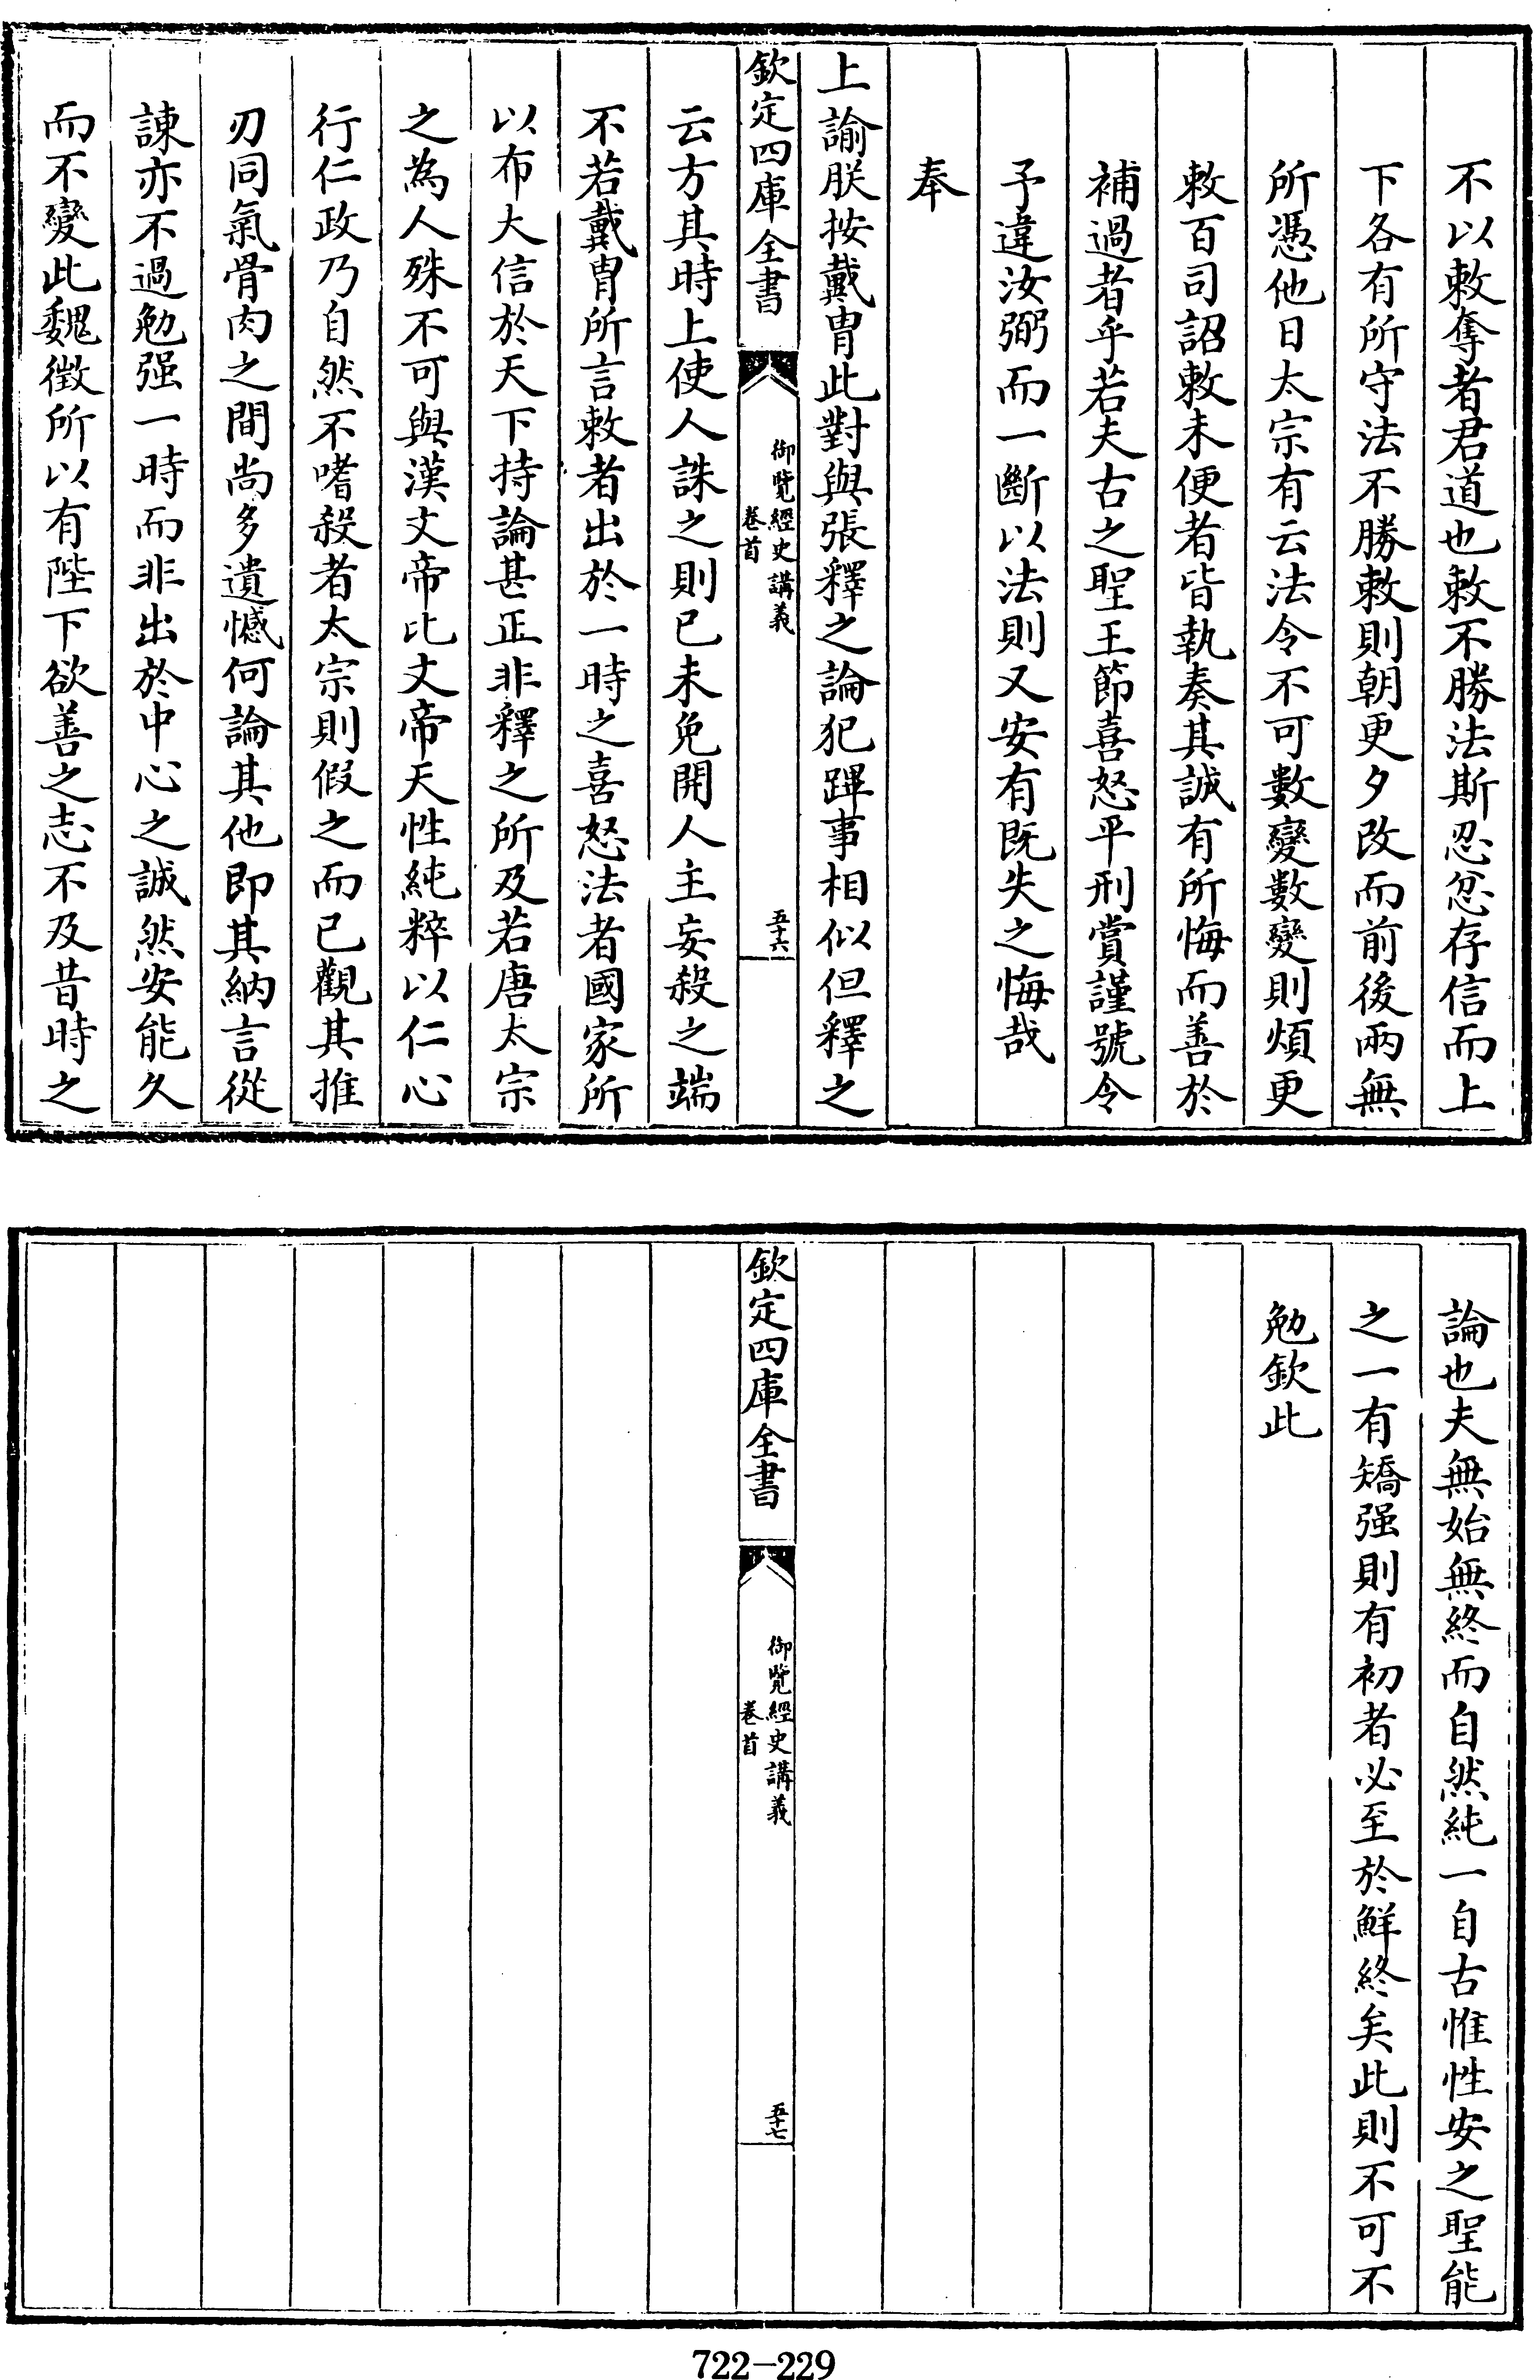 不以敕奪者君道也敕不勝法斯忍忿存信而上
下各有所守法不勝敕則朝更夕改而前後兩無
所憑他日太宗有云法令不可數變數變則煩更
敕百司詔敕未便者皆執奏其誠有所悔而善於
補過者乎若夫古之聖王節喜怒平刑賞謹號令
予違汝弼而一斷以法則又安有既失之悔哉
奉
上諭朕按戴胄此對與張釋之論犯蹕事相似但釋之
欽定四庫全書
御覽經史講義
卷首
五十六
云方其時上使人誅之則已未免開人主妄殺之端
不若戴胄所言敕者出於一時之喜怒法者國家所
以布大信於天下持論甚正非釋之所及若唐太宗
之為人殊不可與漢文帝比文帝天性純粹以仁心
行仁政乃自然不嗜殺者太宗則假之而已觀其推
刃同氣骨肉之間尚多遺憾何論其他即其納言從
諫亦不過勉强一時而非出於中心之誠然安能久
而不變此魏徵所以有陛下欲善之志不及昔時之
論也夫無始無終而自然純一自古惟性安之聖能
之一有矯强則有初者必至於鮮終矣此則不可不
勉欽此
欽定四庫全書
御覽經史講義
卷首
五十七
722-229